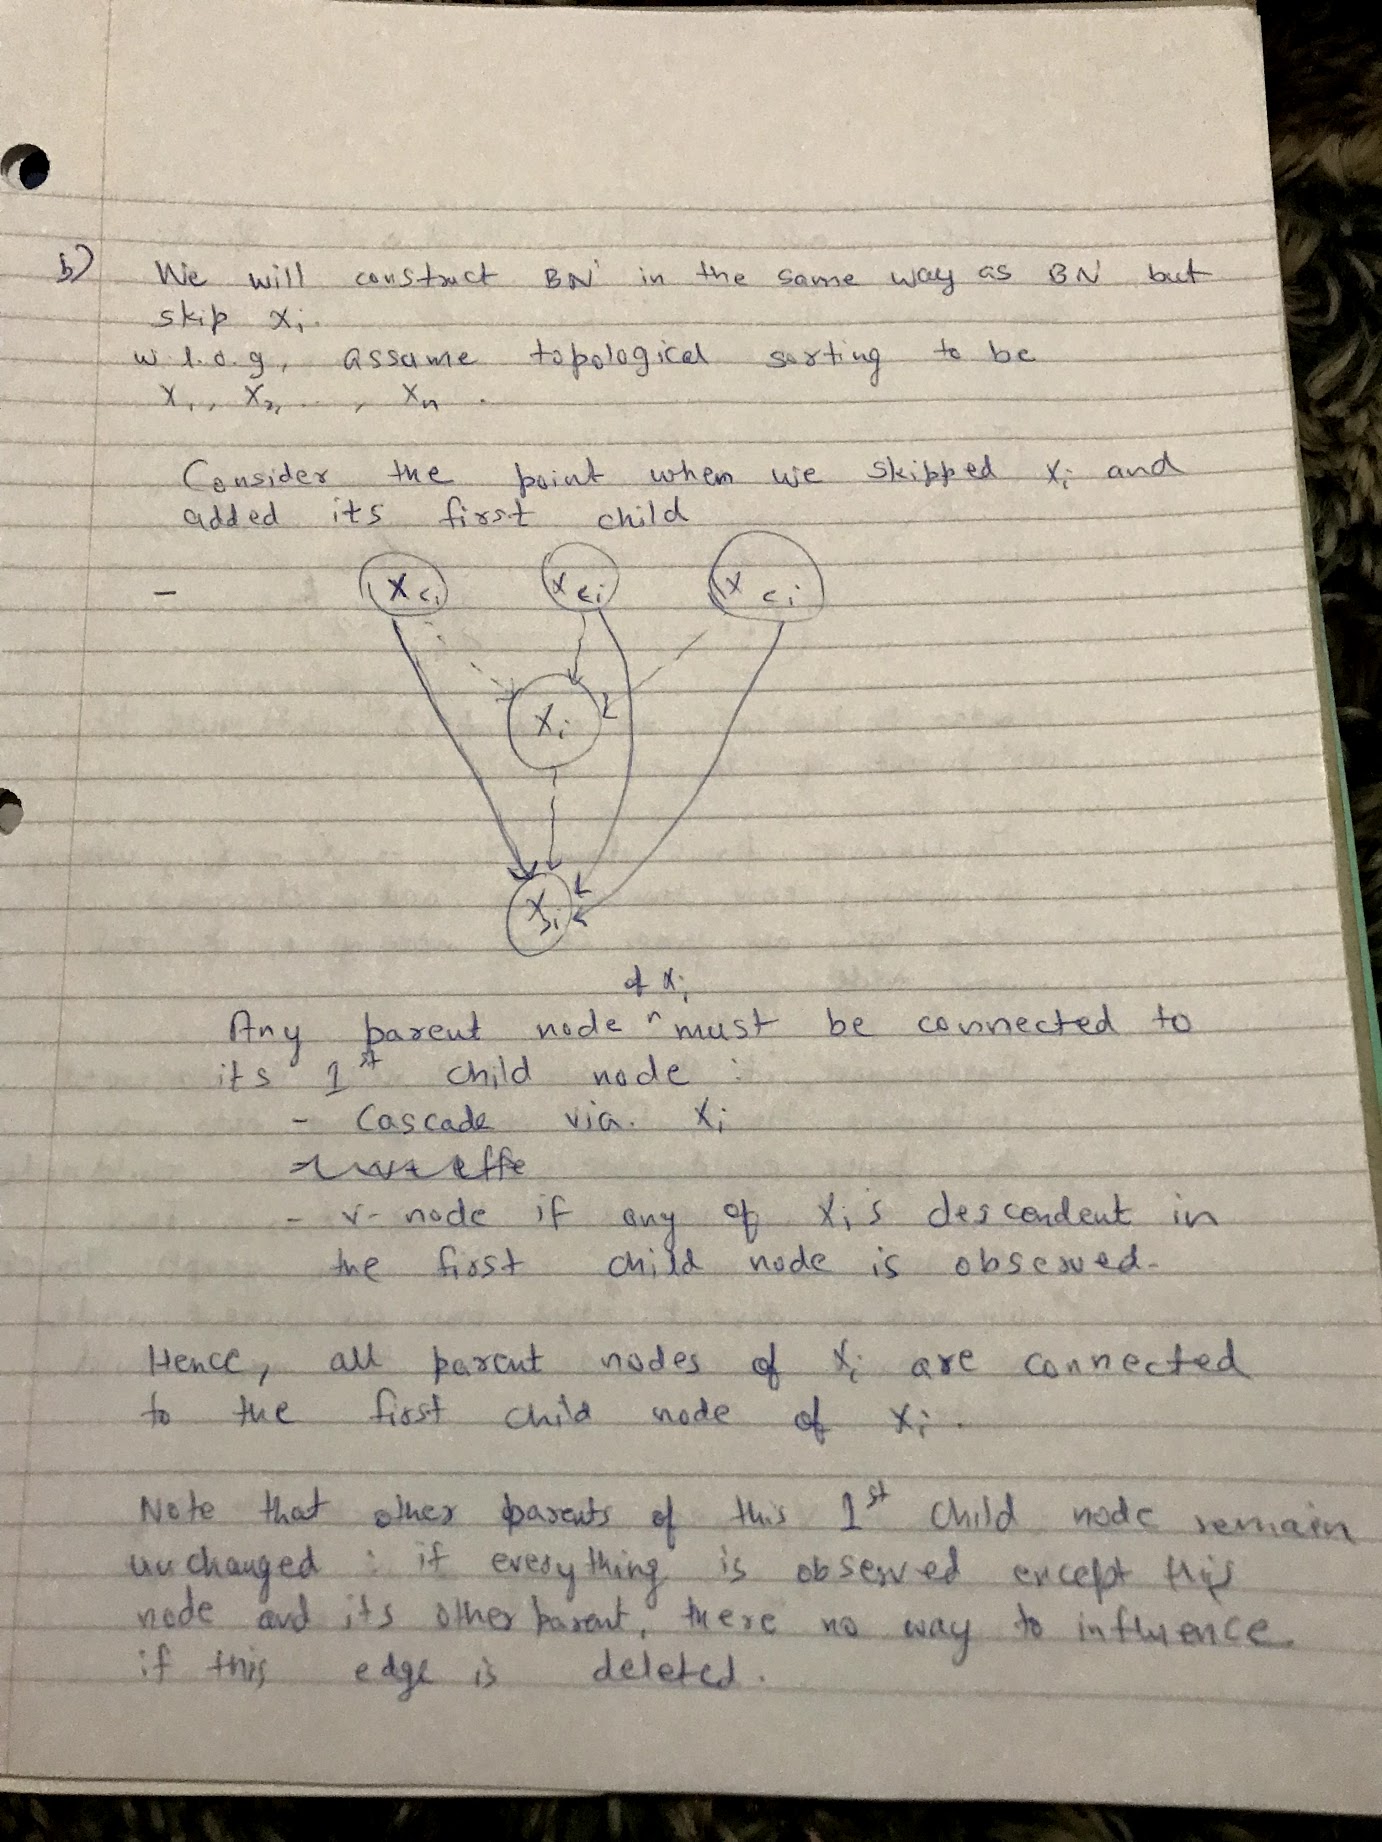 b) We will construct BN' in the same way as BN but
skip Xi.
w.l.o.g, assume topological sorting to be
X1, X2, . . , Xn .
Consider the point when we skipped Xi and
added its first child
- Xci Xci Xci
Xi
Xji
of Xi
Any parent node ^ must be connected to
its 1st child node :
- Cascade via. Xi
- v-node if any of Xi's descendent in
the first child node is observed.
Hence, all parent nodes of Xi are connected
to the first child node of Xi.
Note that other parents of this 1st child node remain
unchanged : if everything is observed except this
node and its other parent, there no way to influence
if this edge is deleted.